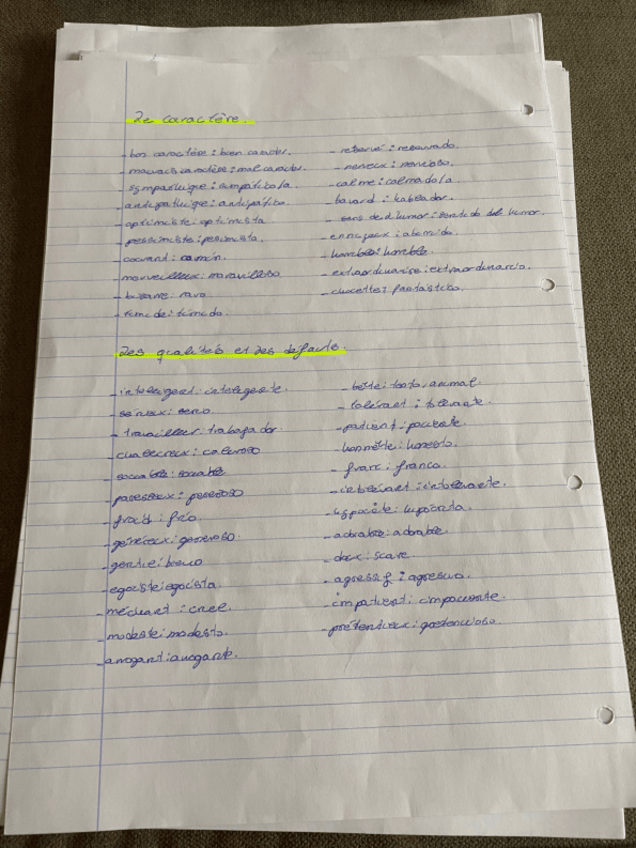 2e caractère.
- bon caractère: buen carácter.
- mauvais caractère: mal caracter.
- sympathique: simpático/a
- antipathique: antipático.
- optimiste: optimista
- pessimiste: pesimista.
- courant: común.
- merveilleux: maravilloso
- bizarre: raro
- timide: timido.
- réservé: reservado.
- nerveux: nervioso.
- calme: calmado/a
- bavard: hablador.
- sens de d'humor: sentido del humor.
- ennuyeux: aburrido.
- horrible: horrible.
- extraordinaire: extraordinario.
- chouette: fantástico.
Les qualités et les défauts.
- intelligent: inteligente.
- sérieux: serio
- travailleur: trabajador.
- chaleureux: caluroso
- sociable: sociable
- paresseux: perezoso
- froid: frío.
- généreux: generoso.
- gentil: bueno
- egoïste: egoísta.
- méchant: cruel.
- modeste: modesto.
- arrogant: arrogante.
- bête: tonto, animal
- tolérant: tolerante.
- patient: paciente
- honnête: honesto.
- franc: franco.
- intolérant: intolerante.
- hypocrite: hipócrita.
- adorable: adorable.
- doux: suave.
- agressif: agresivo.
- impatient: impaciente.
- prétentieux: pretencioso.